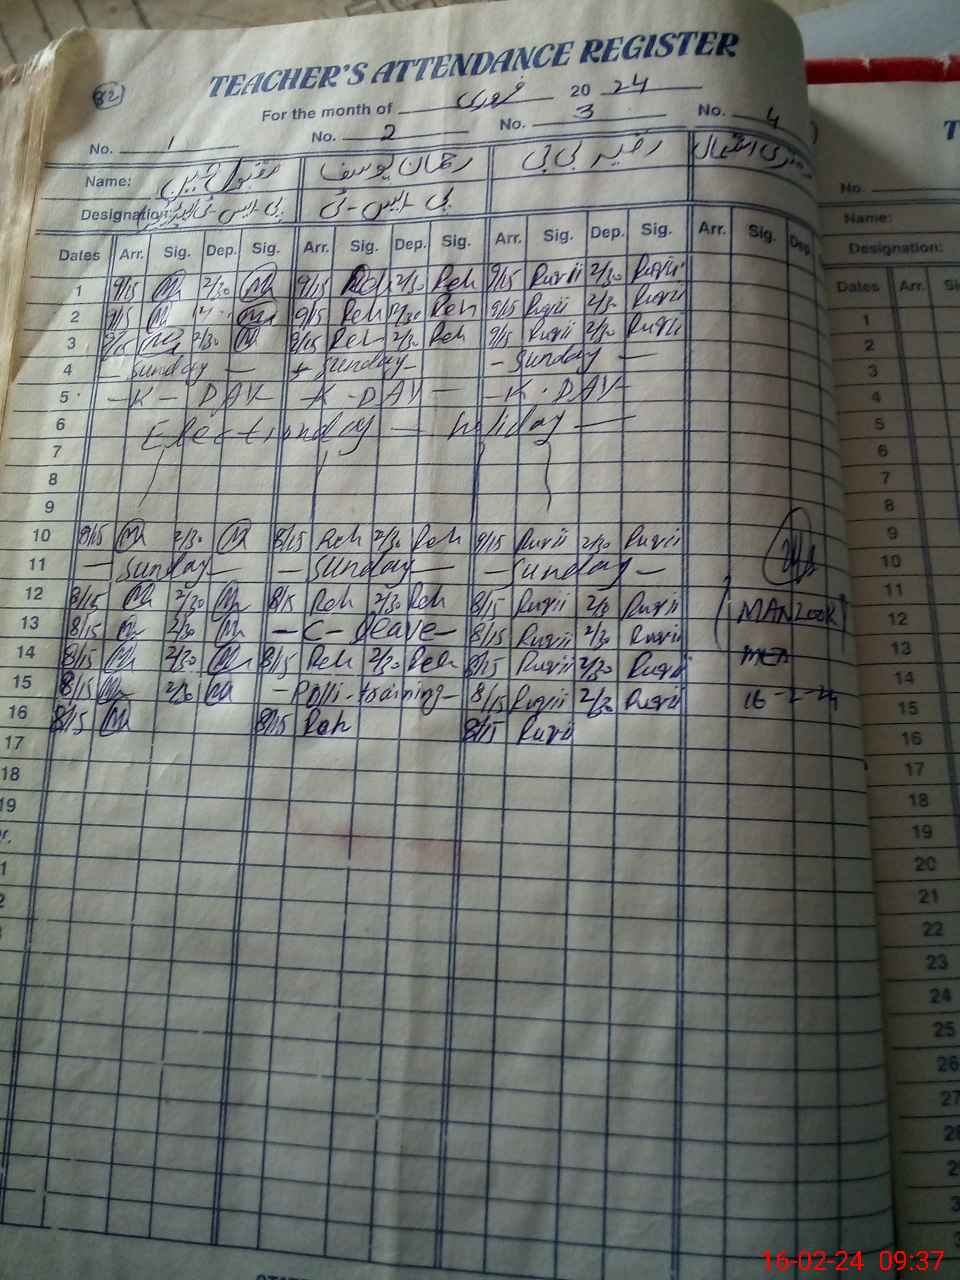 82
TEACHER'S ATTENDANCE REGISTER
For the month of فروری 20 24
No. 1 No. 2 No. 3 No. 4
Name: مقبول حسین رحمان یوسف رقیہ بی بی
Designation: پی-ایس-ٹی پی-ایس-ٹی
Dates Arr. Sig. Dep. Sig. Arr. Sig. Dep. Sig. Arr. Sig. Dep. Sig. Arr. Sig. Dep.
1 9/15 M 2/30 M 9/15 Reh 2/30 Reh 9/15 Ruqii 2/30 Ruqii
2 9/15 M M 9/15 Reh 12/30 Reh 9/15 Ruqii 2/30 Ruqii
3 9/15 M 2/30 M 9/15 Reh 2/30 Reh 9/15 Ruqii 2/30 Ruqii
4 – Sunday – – Sunday – – Sunday –
5 – K – DAY – K - DAY – – K - DAY –
6 Election day – holiday –
7
8
9
10 9/15 M 2/30 M 8/15 Reh 2/30 Reh 9/15 Ruqii 2/30 Ruqii
11 – Sunday – – Sunday – – Sunday –
12 8/15 M 2/30 M 8/15 Reh 2/30 Reh 8/15 Ruqii 2/30 Ruqii (MANZOOR)
13 8/15 M 2/30 M – C – leave – 8/15 Ruqii 2/30 Ruqii
14 8/15 M 2/30 M 8/15 Reh 2/30 Reh 8/15 Ruqii 2/30 Ruqii MEA
15 8/15 M 2/30 M – Polli - training – 8/15 Ruqii 2/30 Ruqii 16-2-24
16 8/15 M 8/15 Reh 8/15 Ruqii
17
18
19
No.
Name:
Designation:
Dates Arr.
1
2
3
4
5
6
7
8
9
10
11
12
13
14
15
16
17
18
19
20
21
22
23
24
25
26
27
16-02-24 09:37